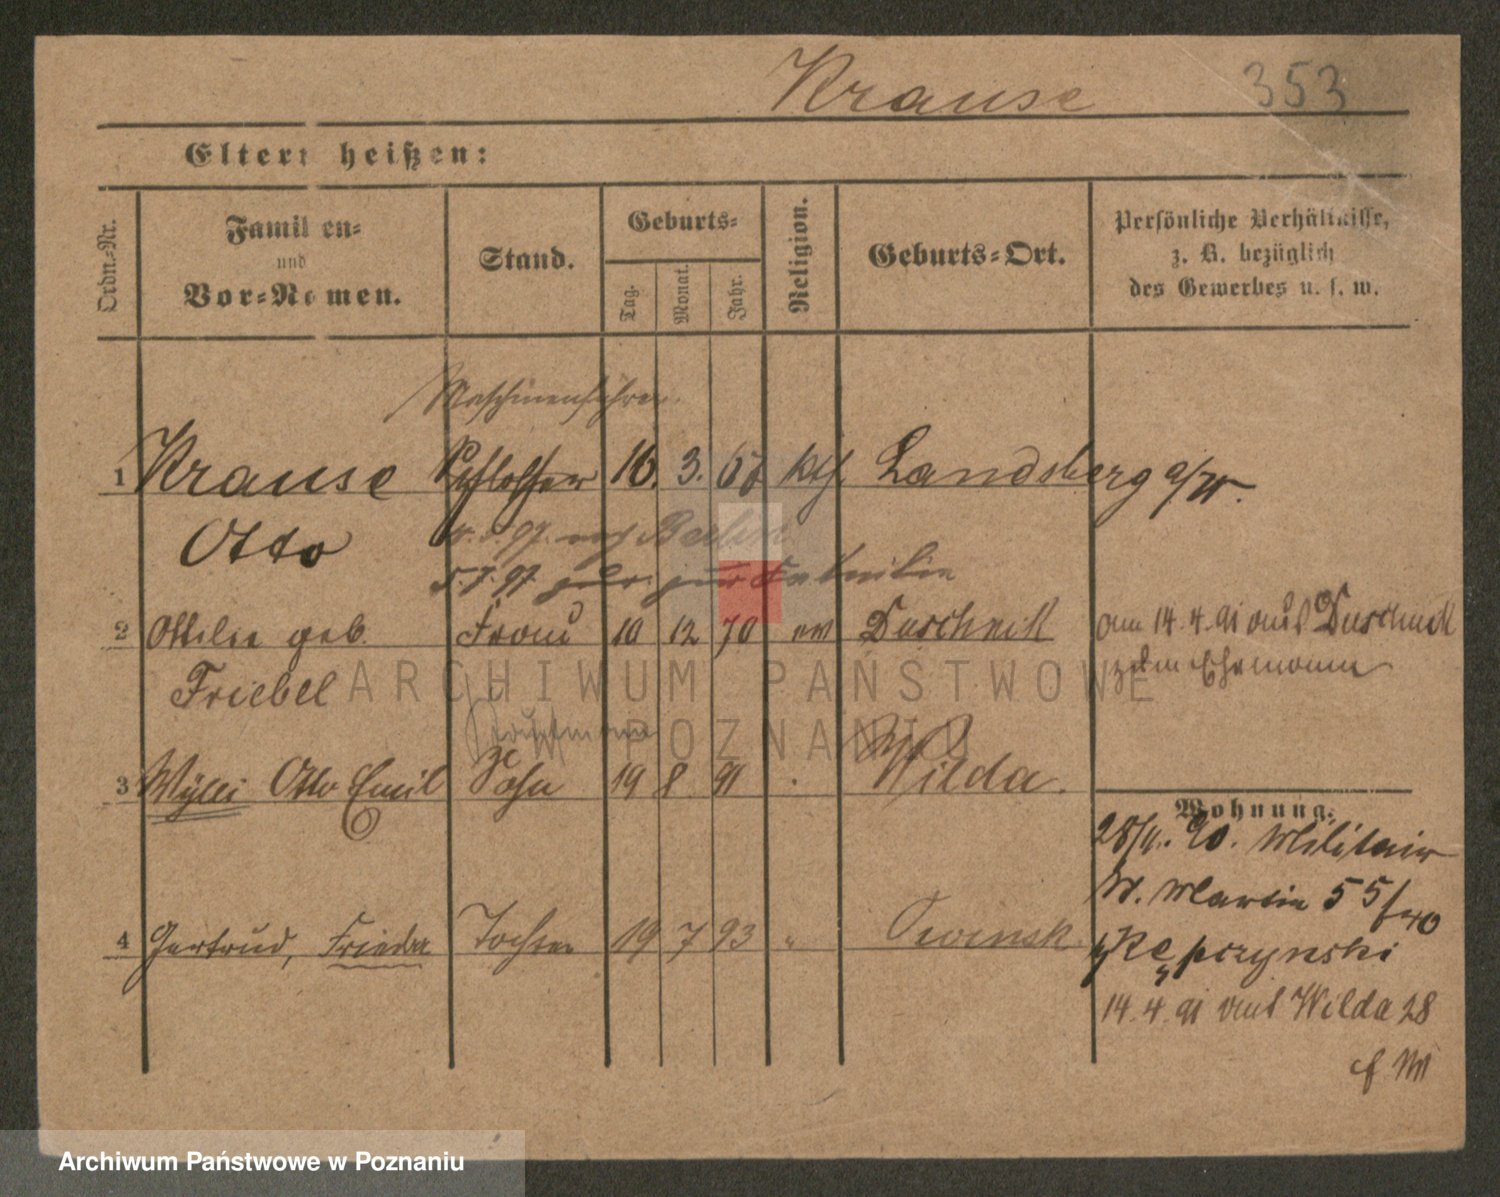 Krause 353
Eltern heißen:
Ordn.-Nr.
Familien-
und
Vor-Namen.
Stand.
Geburts-
Tag.
Monat.
Jahr.
Religion.
Geburts-Ort.
Persönliche Verhältnisse,
z. B. bezüglich
des Gewerbes u. s. w.
Maschinenführer
1 Krause Schlosser 16. 3. kth. Landsberg a/W.
Otto nach Berlin
5.7.97. zur.
2 Ottilie geb. Frau 10 12 70 ev Duschnik am 14.4.91 aus Duschnik
Friebel z. dem Ehemann
3 Otto Emil Sohn 19 8 91 Wilda.
Wohnung.
28/11. 90. Militair
St. Martin 55/
4 Gertrud, Frieda Tochter 19 7 93 " Owinsk
Kępczynski
14.4.91 aus Wilda 28
ARCHIWUM PAŃSTWOWE
W POZNANIU
Archiwum Państwowe w Poznaniu